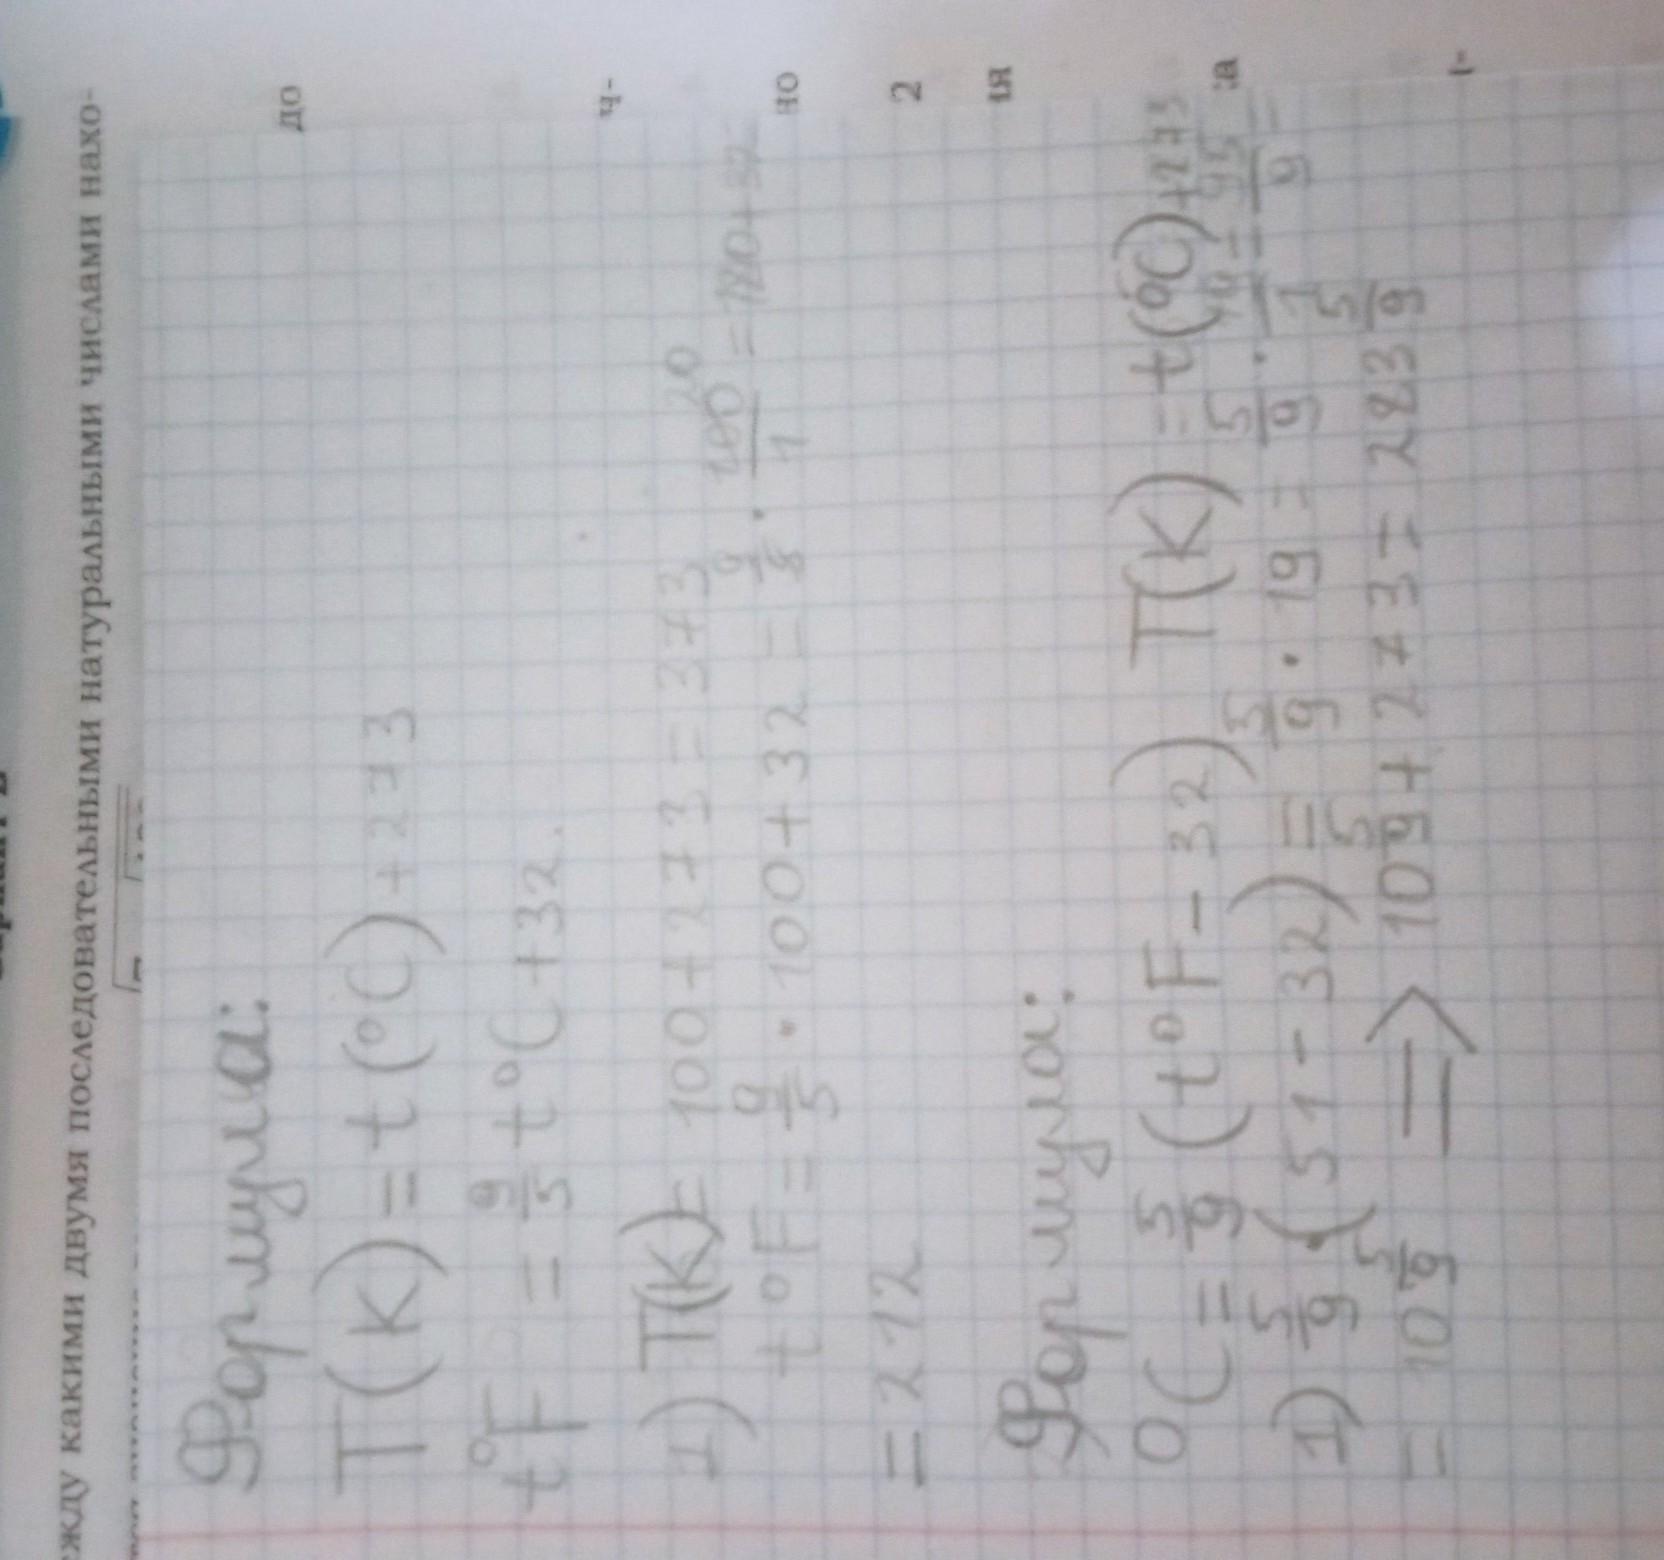 жду какими двумя последовательными натуральными числами нахо-
до
ч-
но
2
ия
за
Формула:
T(K) = t(°C) + 273
t°F = 9/5 t°C + 32.
1) T(K) = 100 + 273 = 373
t°F = 9/5 · 100 + 32 = 9/5 · 100/1 20 = 180 + 32
= 212
Формула:
°C = 5/9 (t°F - 32) T(K) = t(°C) + 273
1) 5/9 · (51 - 32) = 5/9 · 19 = 5/9 · 19/1 = 95/9 =
= 10 5/9 => 10 5/9 + 273 = 283 5/9